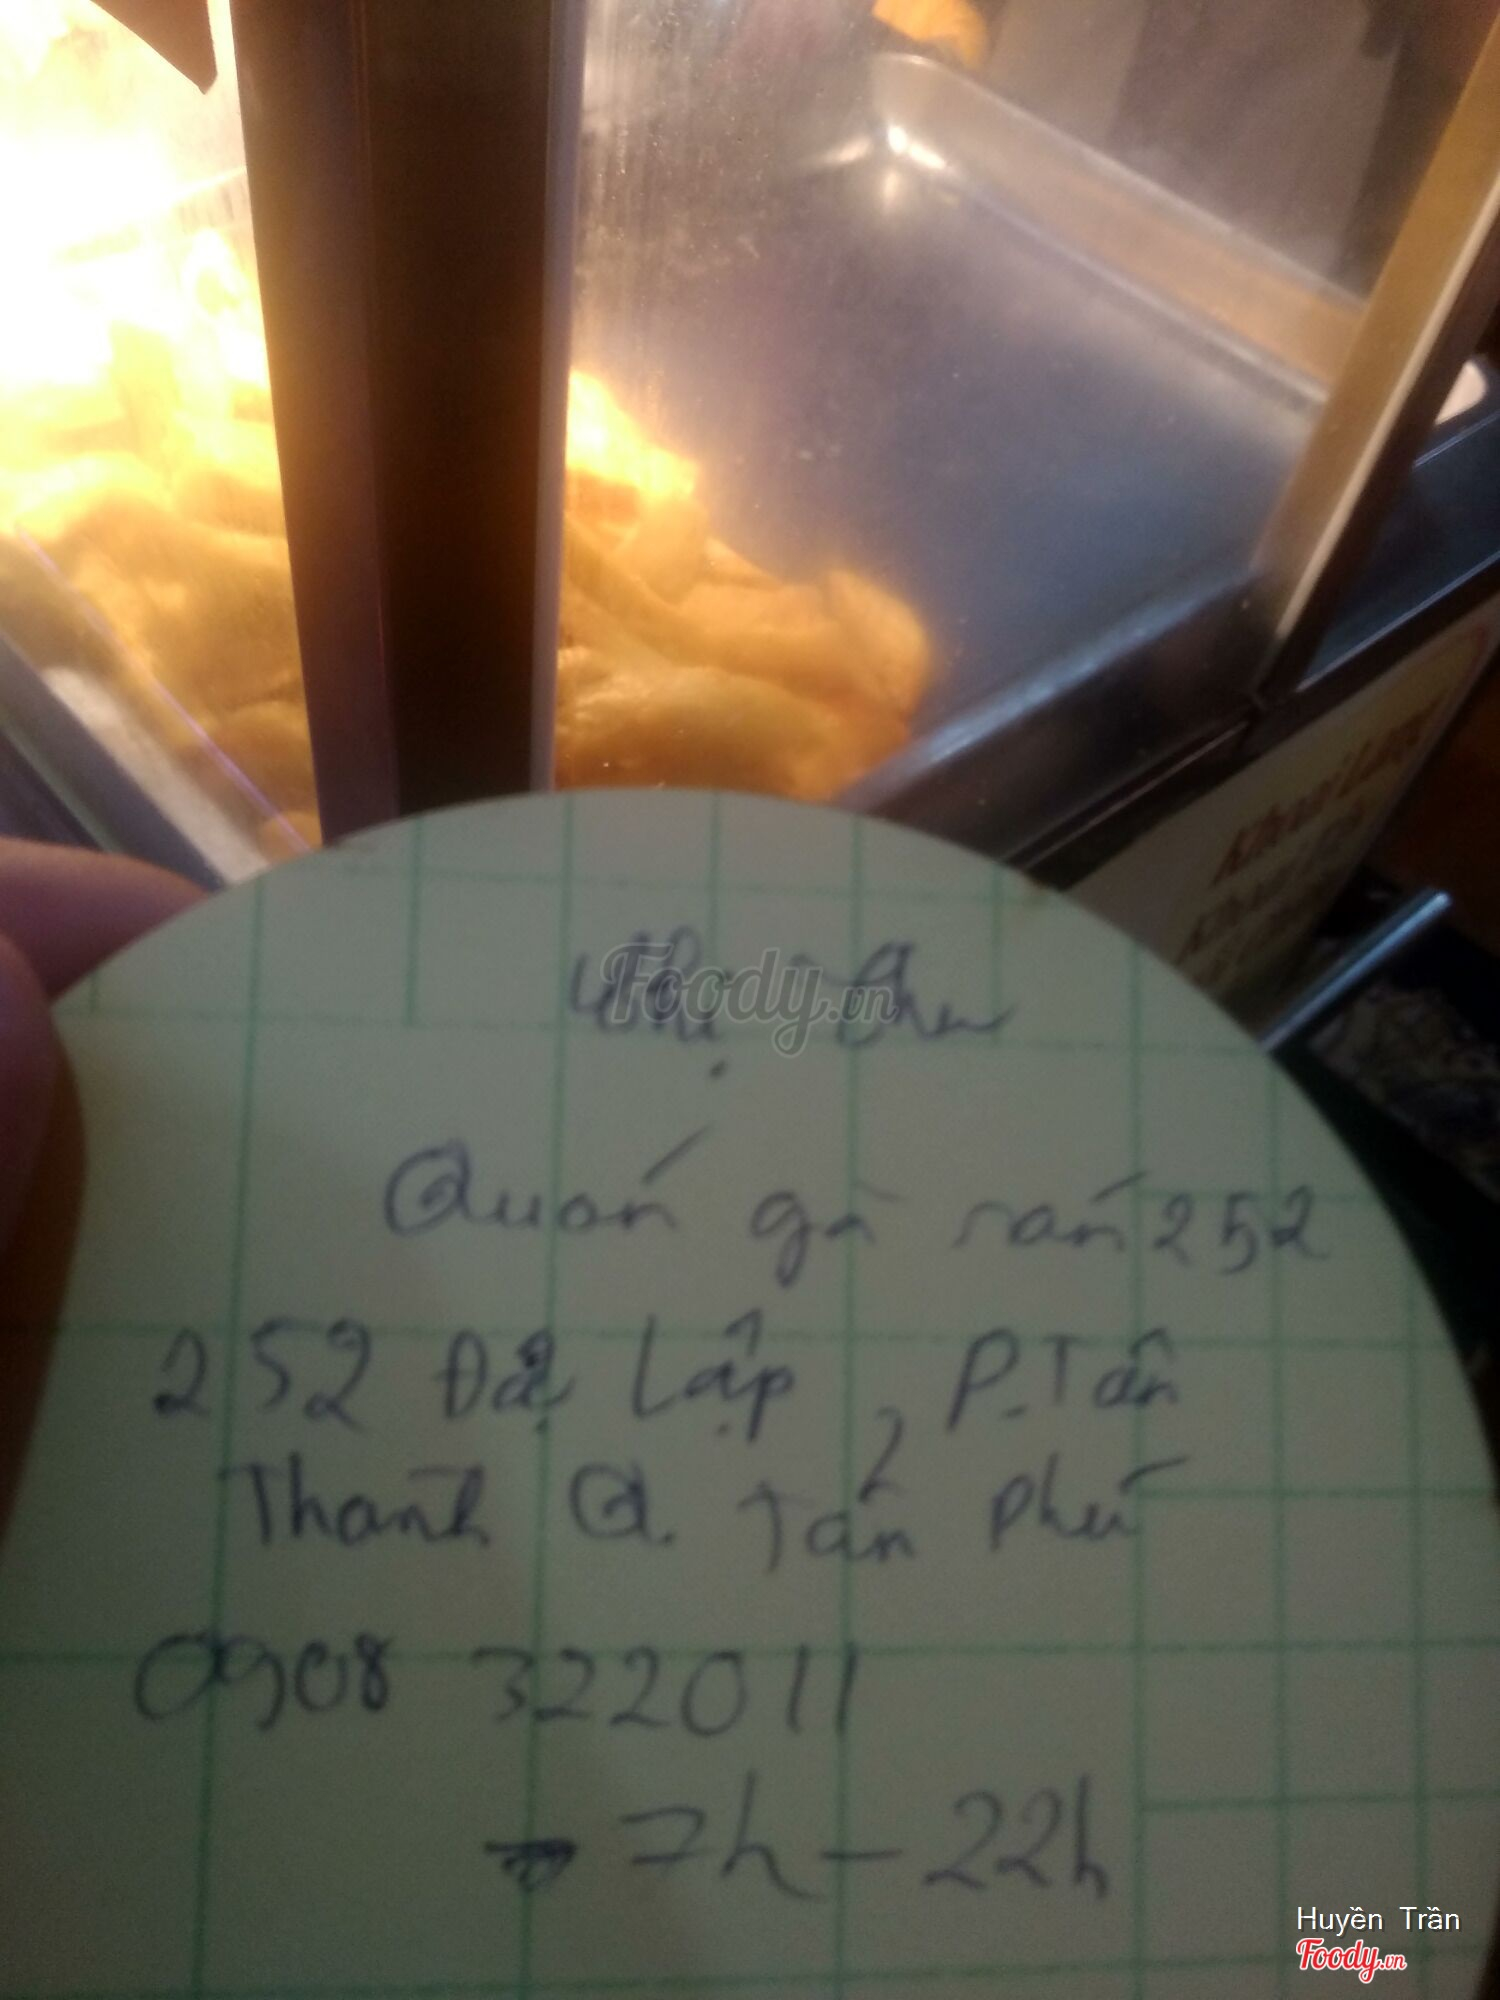 Chị Thu
Quán gà rán 252
252 Độc Lập, P. Tân
Thành Q. Tân Phú
0908 322011
7h - 22h
Foody.vn
Huyền Trần
Foody.vn